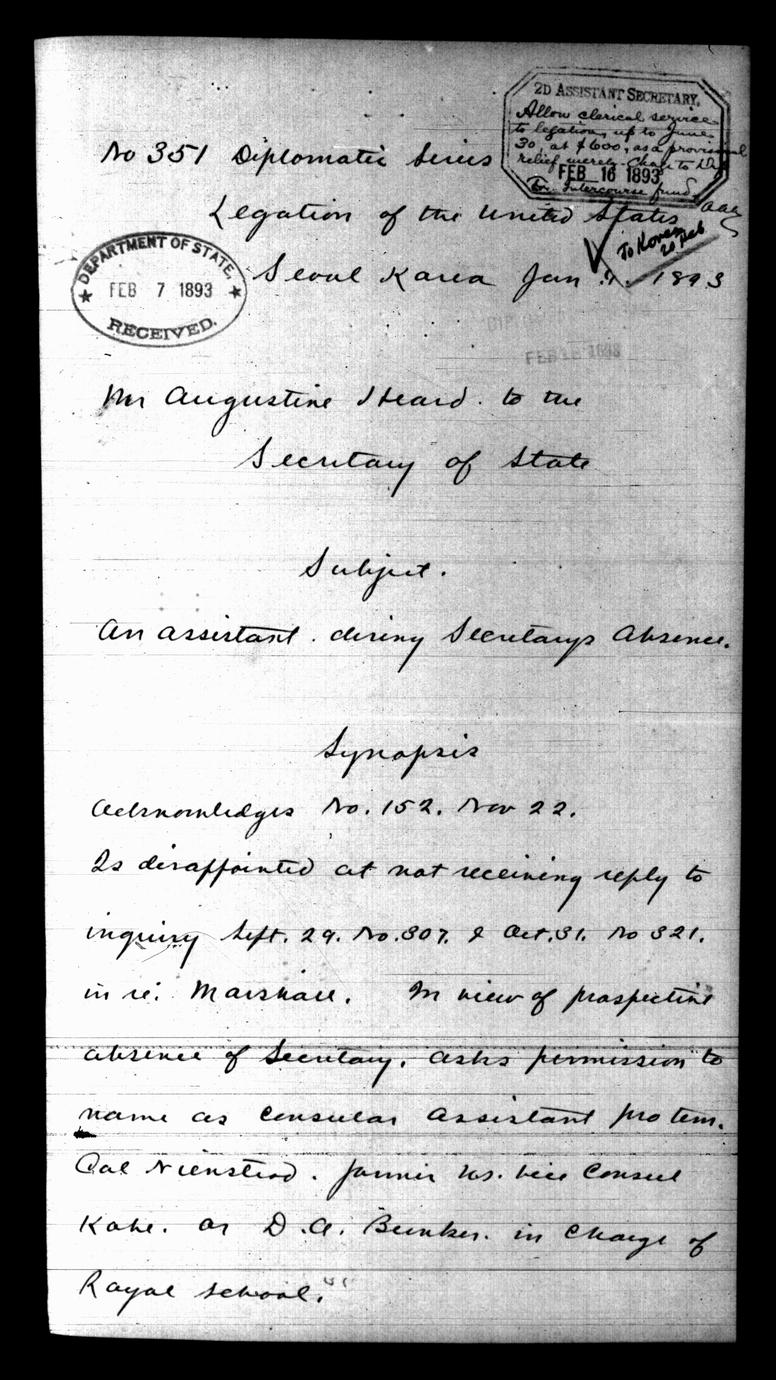 2D ASSISTANT SECRETARY,
Allow clerical service
to legation, up to June
30, at $600, as a provisional
relief merely. Charge to
FEB 16 1893
Intercourse fund.
aaa
No 351 Diplomatic Series
Legation of the United States
To Korea
20 Feb
DEPARTMENT OF STATE,
FEB 7 1893
RECEIVED.
Seoul Korea Jan 1893
FEB 1893
Mr Augustine Heard. to the
Secretary of State
Subject.
An assistant. during Secretarys Absence.
Synopsis
Acknowledges No. 152. Nov 22.
Is disappointed at not receiving reply to
inquiry Sept. 29. No. 307. & Oct. 31. No 321.
in re: Marshall. In view of prospective
absence of Secretary. asks permission to
name as Consular Assistant pro tem.
Col Nienstead. former US. Vice Consul
Kobe. or D. A. Bunker. in charge of
Royal School.